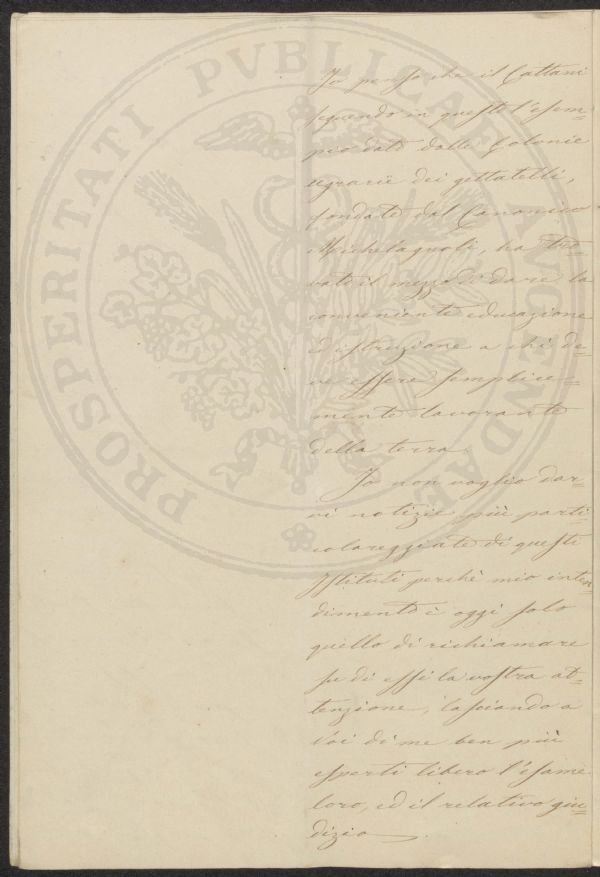 PROSPERITATI PVBLICAE AVGENDAE
Io penso che il Cattani
seguendo in questo l'esem=
pio dato dalle Colonie
agrarie dei gettatelli,
fondate dal Canonico
Michelagnoli, ha tro=
vato il mezzo di dare la
conveniente educazione
ed istruzione a chi de=
ve essere semplice=
mente lavorante
della terra.
Io non voglio dar=
vi notizie più parti
colareggiate di questi
Istituti perchè mio inten=
dimento è oggi solo
quello di richiamare
su di essi la vostra at=
tenzione, lasciando a
Voi di me ben più
esperti libero l'esame
loro, ed il relativo giu=
dizio.